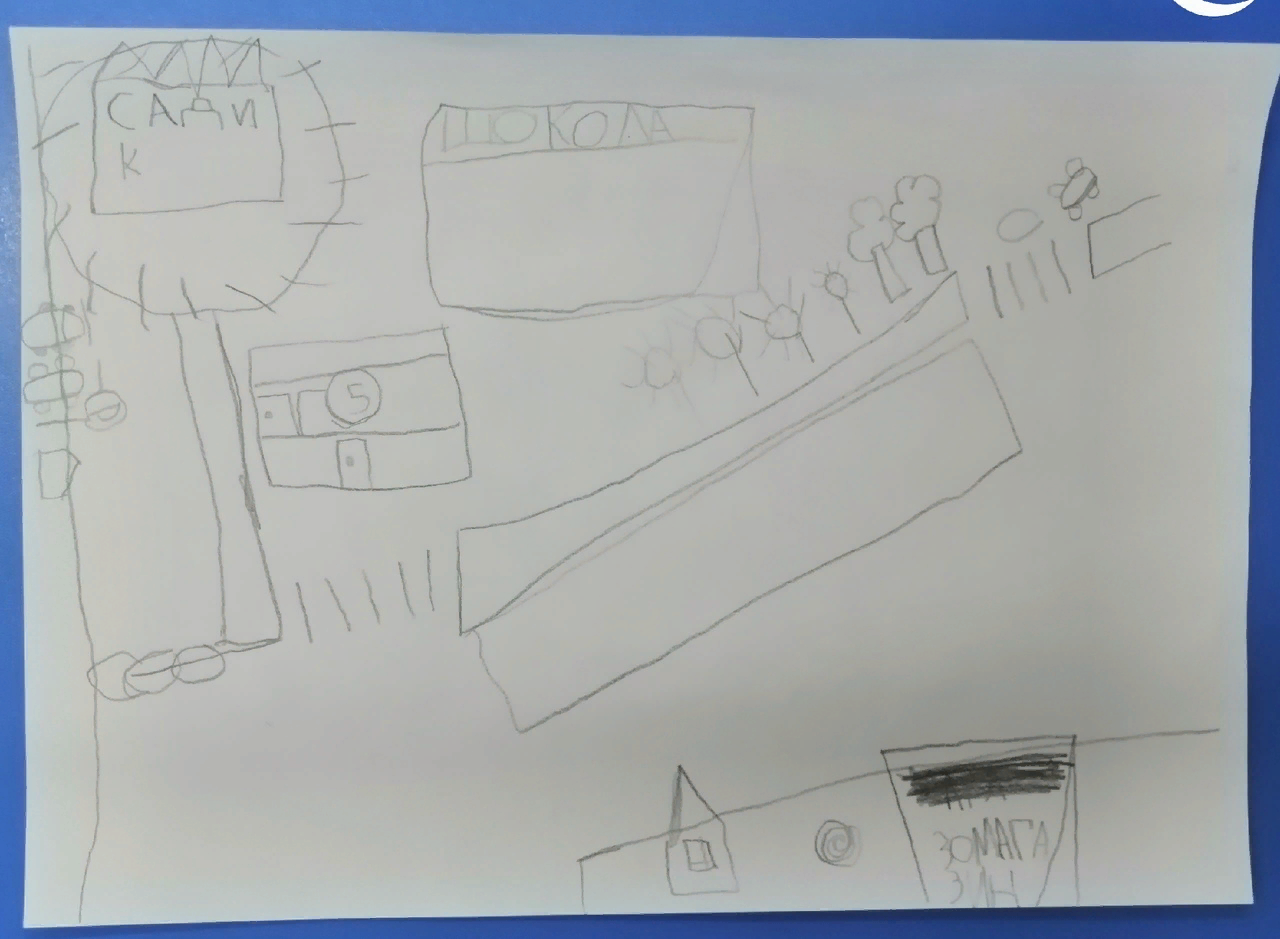 САДИ
К
ШОКОЛА
5
ЗОМАГА
ЗИН